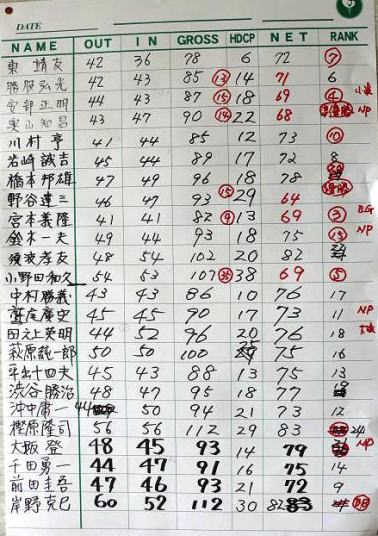 DATE
NAME OUT IN GROSS HDCP NET RANK
東 42 36 78 6 72 ⑦
勝股弘光 42 43 85 ⑬ 14 71 6
安部正明 44 43 87 18 69 ④
奥山知昌 43 47 90 22 68 準優勝 NP
川村 亨 41 44 85 12 73 ⑩
岩崎誠吉 45 44 89 17 72 8
橋本邦雄 47 49 96 18 78
野谷達三 46 47 93 29 64 優勝
宮本義隆 41 41 82 ⑨ 13 69 ③ BG
鈴木一夫 49 44 93 18 75 NP
須波孝友 48 54 102 20 82
小野田和久 54 53 107 38 69 ⑤
中村勝義 43 43 86 10 76 17
鷲尾廣史 45 45 90 17 73 11 NP
田之上英明 44 52 96 20 76 18
萩原龍一郎 50 50 100 25 75 16
平出十四夫 45 43 88 13 75 13
渋谷勝治 48 47 95 18 77
沖中庸一 44 50 94 21 73 12
樫原隆司 56 56 112 29 83
大坂 登 48 45 93 14 79 NP
千田勇一 44 47 91 16 75 14
前田圭吾 47 46 93 21 72 9
岸野克巳 60 52 112 30 82